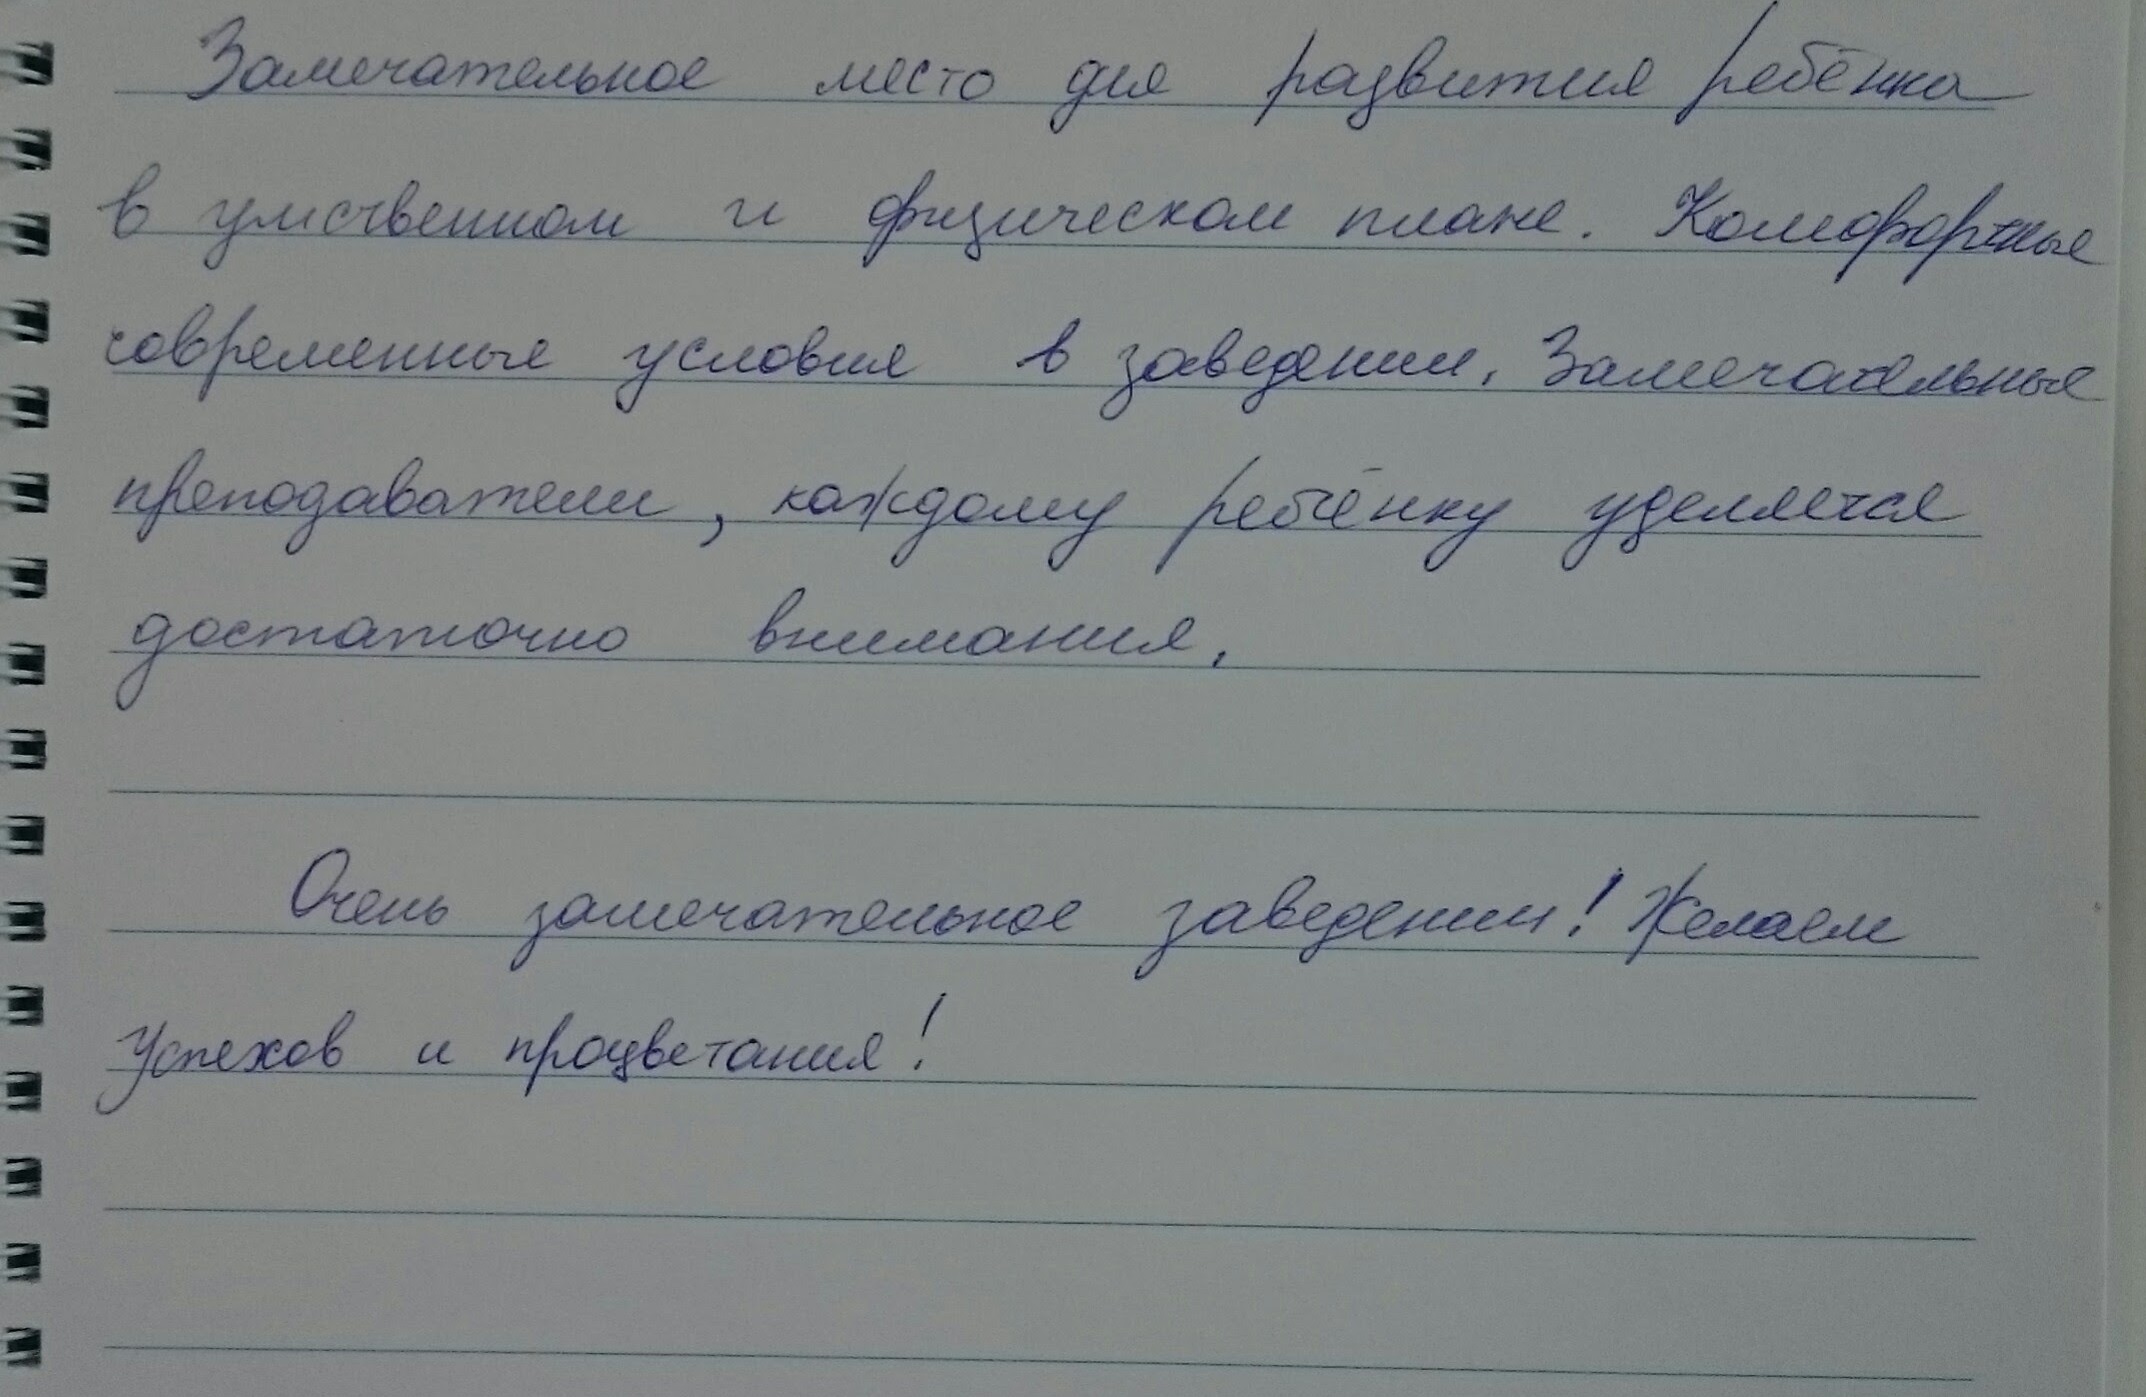 Замечательное место для развития ребёнка
в умственном и физическом плане. Комфортные
современные условия в заведении. Замечательные
преподаватели, каждому ребёнку уделяется
достаточно внимания.
Очень замечательное заведении! Желаем
Успехов и процветания!